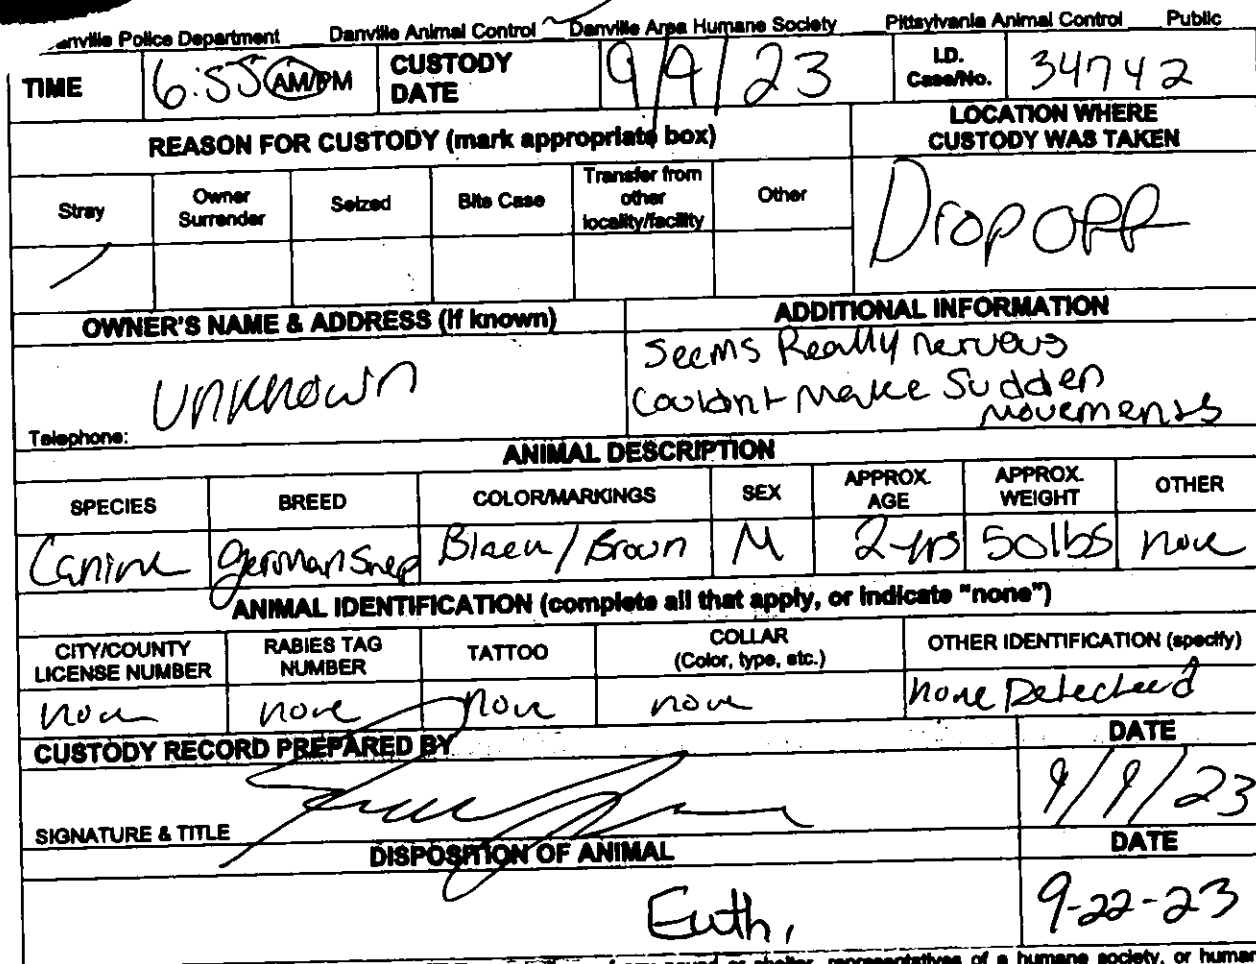 anville Police Department Danville Animal Control Danville Area Humane Society Pittsylvania Animal Control Public
TIME 6:55 AM/PM CUSTODY DATE 9/9/23 I.D. Case/No. 34742
REASON FOR CUSTODY (mark appropriate box) LOCATION WHERE CUSTODY WAS TAKEN
Stray Owner Surrender Seized Bite Case Transfer from other locality/facility Other
Drop Off
OWNER'S NAME & ADDRESS (if known) ADDITIONAL INFORMATION
Unknown
Telephone:
Seems Really nervous
Couldnt Make Sudden
movements
ANIMAL DESCRIPTION
SPECIES BREED COLOR/MARKINGS SEX APPROX. AGE APPROX. WEIGHT OTHER
Canine German Shep Black/Brown M 2 yrs 50lbs none
ANIMAL IDENTIFICATION (complete all that apply, or indicate "none")
CITY/COUNTY LICENSE NUMBER RABIES TAG NUMBER TATTOO COLLAR (Color, type, etc.) OTHER IDENTIFICATION (specify)
none none none none none Detected
CUSTODY RECORD PREPARED BY DATE
9/9/23
SIGNATURE & TITLE
DISPOSITION OF ANIMAL DATE
Euth, 9-22-23
pound or shelter, representatives of a humane society, or human